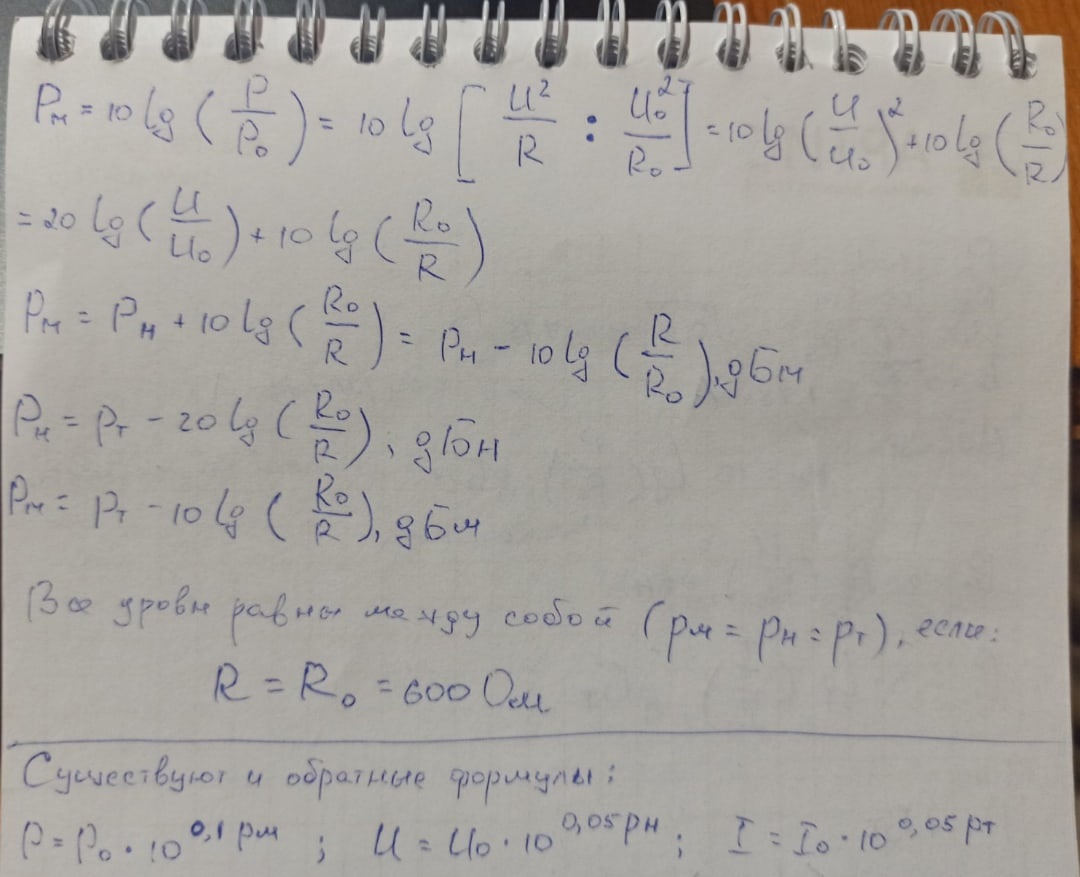 Pм = 10 lg (P/P₀) = 10 lg [U²/R : U₀²/R₀] = 10 lg (U/U₀)² + 10 lg (R₀/R)
= 20 lg (U/U₀) + 10 lg (R₀/R)
Pм = Pн + 10 lg (R₀/R) = Pн - 10 lg (R/R₀), дБм
Pн = Pт - 20 lg (R₀/R), дБн
Pм = Pт - 10 lg (R₀/R), дБм
Все уровн равны между собой (pм = pн = pт), если:
R = R₀ = 600 Ом
Существуют и обратные формулы:
P = P₀ · 10^0,1 pм ; U = U₀ · 10^0,05 pн ; I = I₀ · 10^0,05 pт